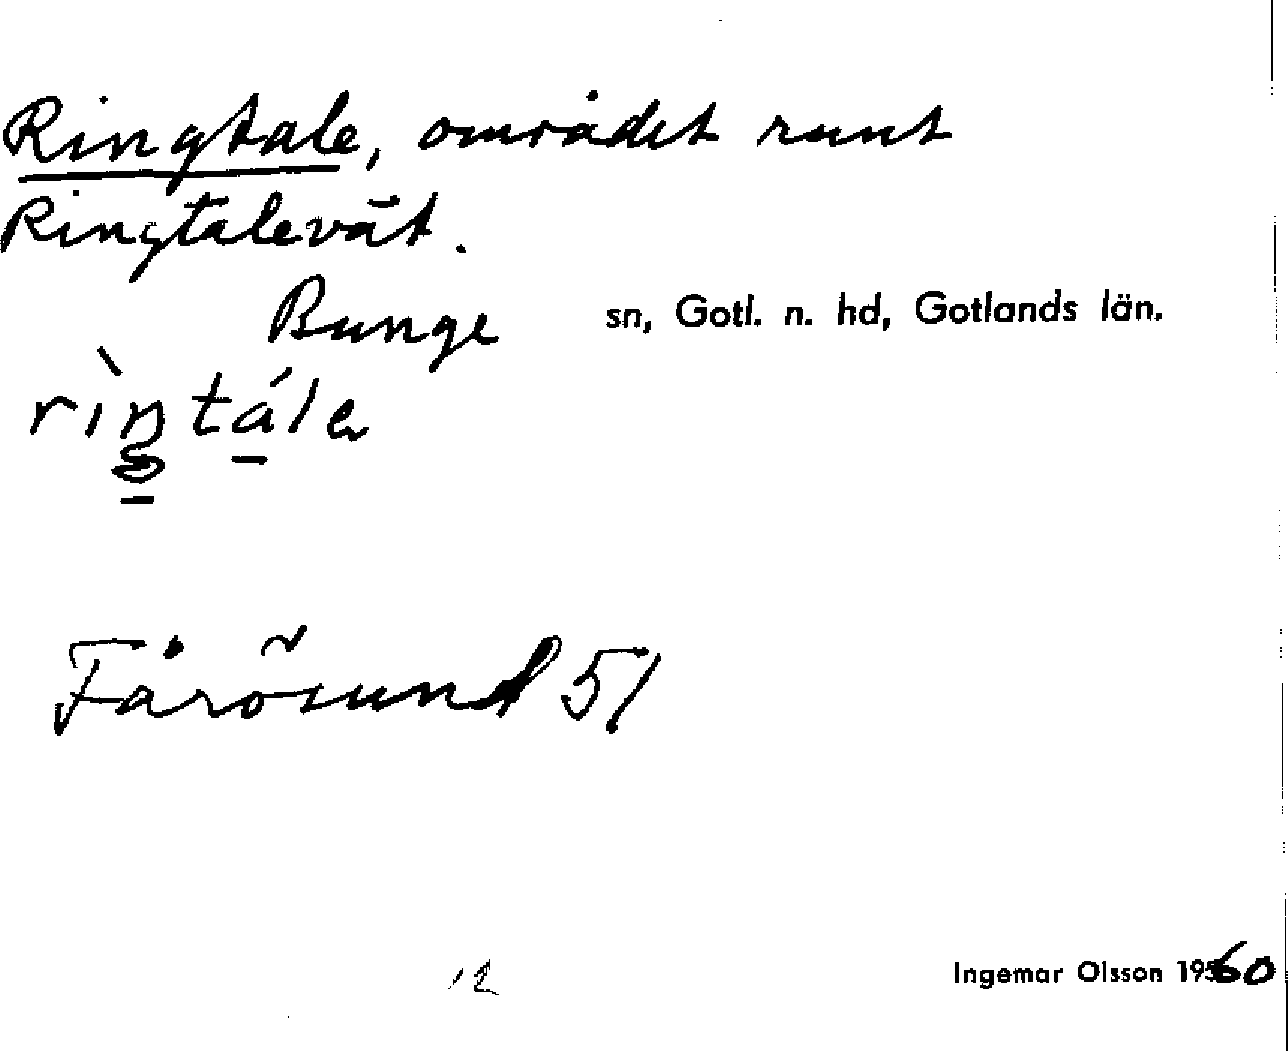 Ringtale, området runt
Ringtalevät.
Bunge sn, Gotl. n. hd, Gotlands län.
Fårösund 51
12
Ingemar Olsson 1960